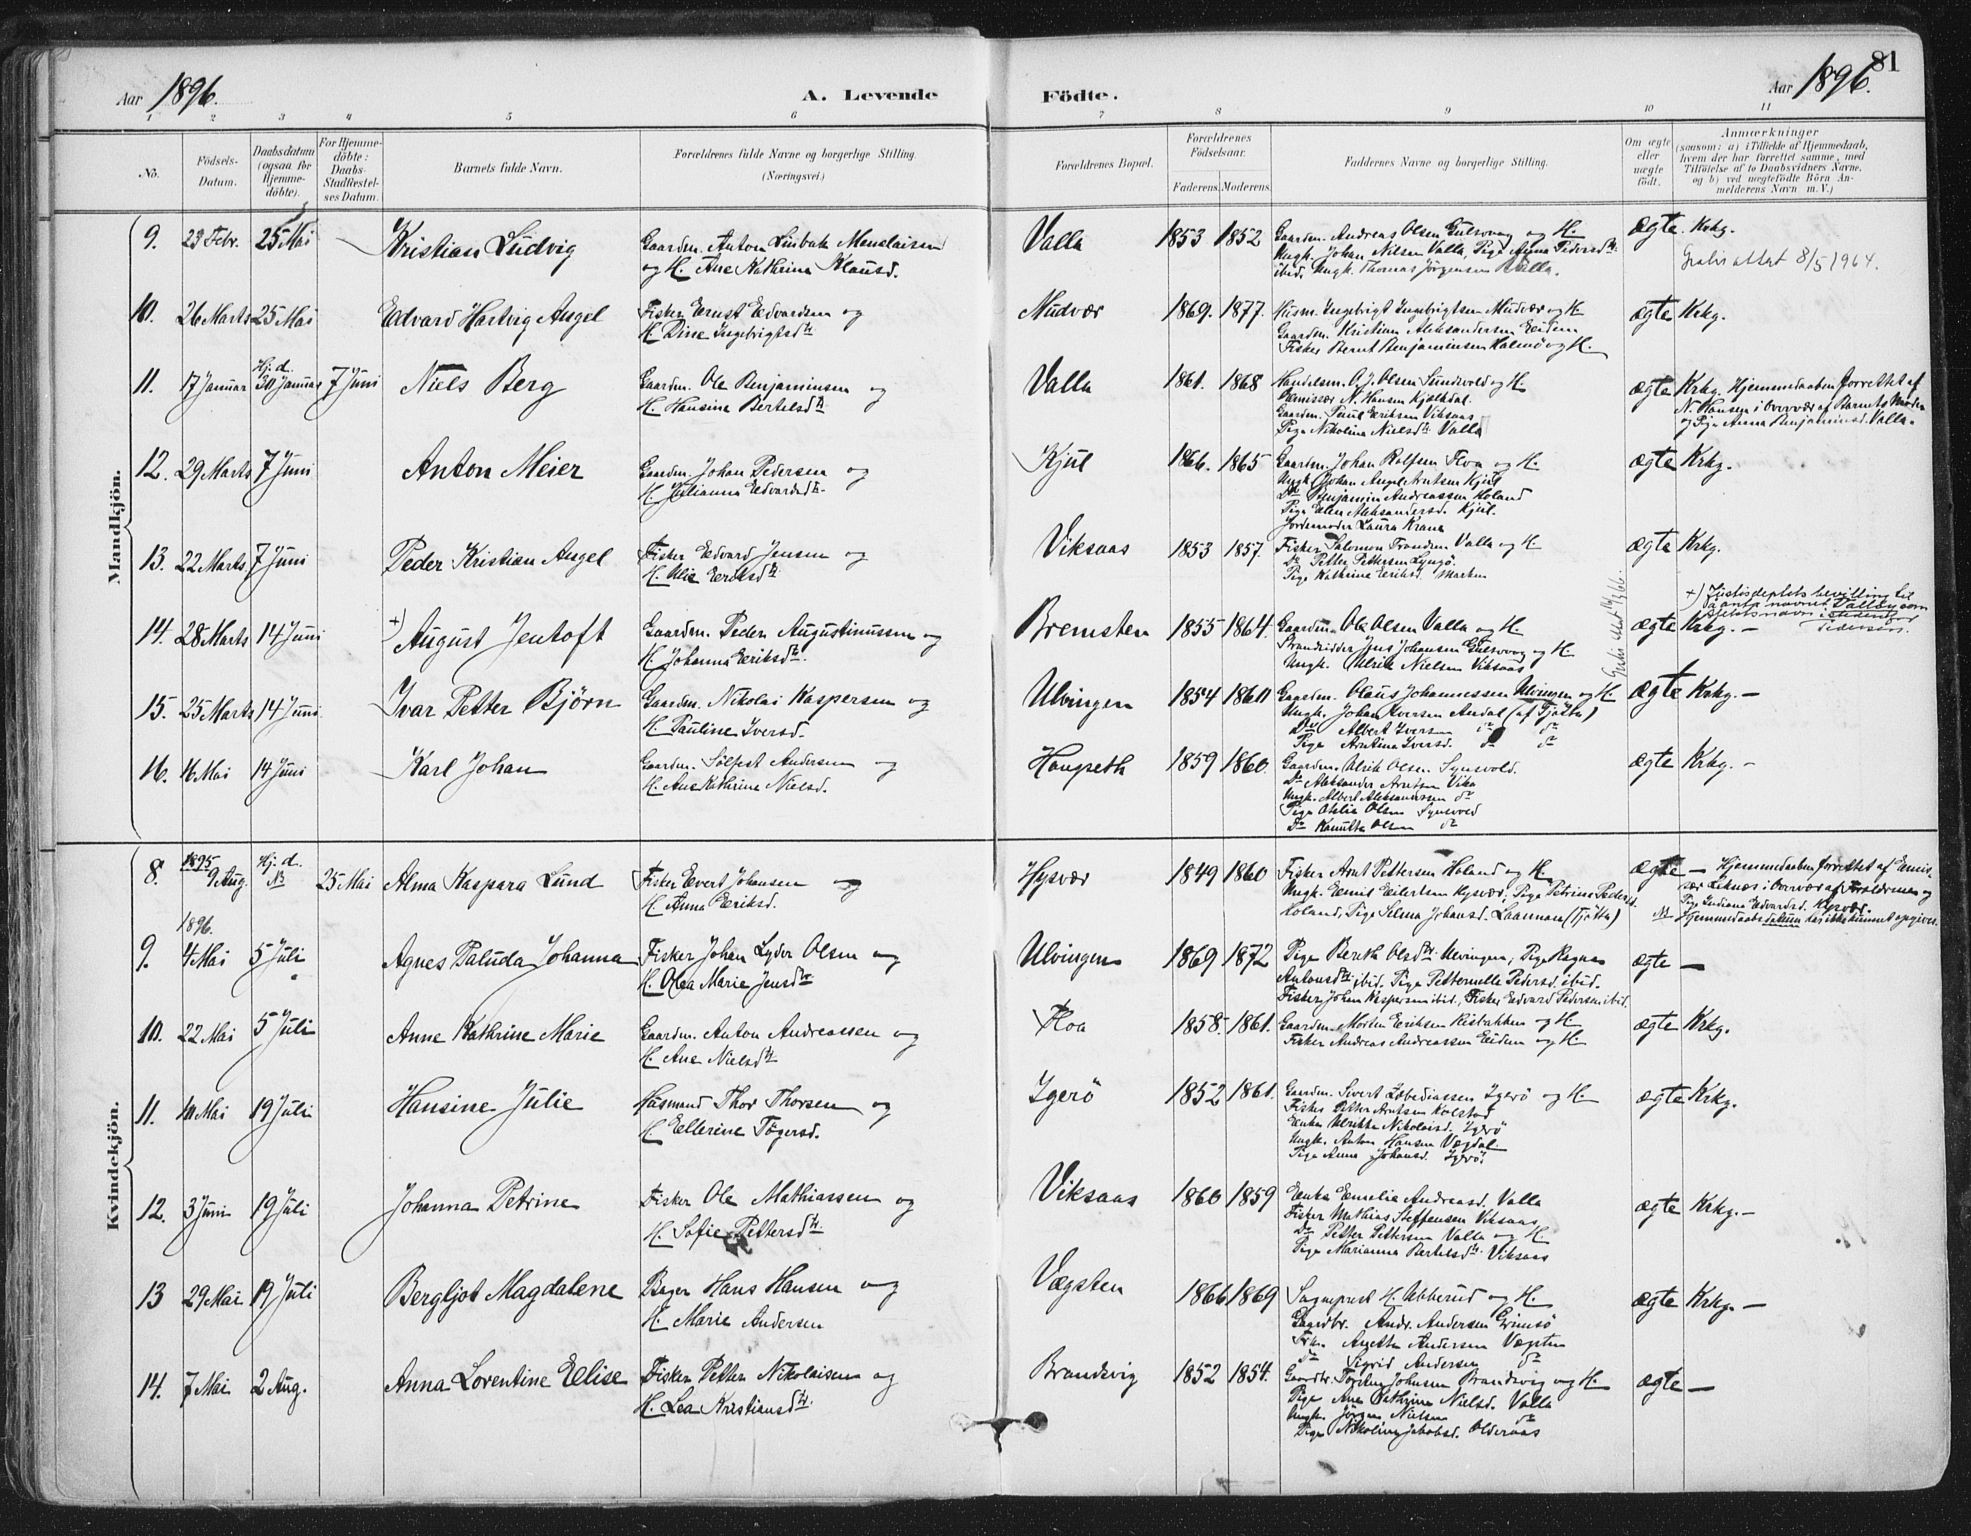 81
Aar 1896. A. Levende Födte. Aar 1896.
1 2 3 4 5 6 7 8 9 10 11
No.
Födsels-
Datum.
Daabsdatum
(ogsaa for
Hjemme-
döbte).
For Hjemme-
döbte:
Daabs-
Stadfæstel-
ses Datum.
Barnets fulde Navn.
Forældrenes fulde Navne og borgerlige Stilling.
(Næringsvei.)
Forældrenes Bopæl.
Forældrenes
Födselsaar.
Faderens. Moderens.
Faddernes Navne og borgerlige Stilling.
Om ægte
eller
uægte
födt.
Anmærkninger
(saasom: a) i Tilfælde af Hjemmedaab,
hvem der har forrettet samme, med
Tilföielse af to Daabsvidners Navne,
og b) ved uægtefödte Börn An-
melderens Navn m. V.)
Mandkjön.
9. 23 Febr. 25 Mai Kristian Ludvig
Gaardm. Anton Linbak Menelaisen
og H. Ane Kathrina Klausd.
Valla 1853 1852
Gaardm. Andreas Olsen Gulsvaag og H.
Ungk. Johan Nilsen Valla, Pige Anna Pedersdtr.
ibid. Ungk. Thomas Jørgensen Valla.
ægte. Krkg.
Gratis attest 8/5 1964.
10. 26 Marts 25 Mai Edvard Hartvig Angel
Fisker Ernst Edvardsen og
H. Dine Ingebrigtsdtr.
Mudvær 1869. 1877.
Husm. Ingebrigt Ingebrigtsen Mudvær og H.
Gaardm. Kristian Aleksandersen Eidem
Fisker Bernt Benjaminsen Halmø og H.
ægte Krkg.
11. 17 Januar Hj. d. 30 Januar 7 Juni Niels Berg
Gaardm. Ole Benjaminsen og
H. Hansine Bertelsdtr.
Valla 1861. 1868
Handelsm. O. J. Olsen Sundsvold og H.
Emissær N. Hansen Kjølkdal.
Gaardm. Paul Eeriksen Viksaas
Pige Nikolina Nielsdtr. Valla
ægte Krkg. Hjemmedaaben forrettet af
N. Hansen i Overvær af Barnets Moder
og Pige Anna Benjaminsd. Valla.
12. 29 Marts 7 Juni Anton Meier
Gaardm. Johan Pedersen og
H. Julianna Edvardsdtr.
Kjul 1866. 1865
Gaardm. Johan Rolfsen Floa og H.
Ungk. Johan Angel Arntsen Kjul
Do Benjamin Andreassen Holand
Pige Elen Aleksandersd. Kjul.
Jordemoder Laura Krane
ægte Krkg.
13. 22 Marts 7 Juni Peder Kristian Angel
Fisker Edvard Jensen og
H. Olie Eeriksdtr.
Viksaas 1853 1857.
Fisker Salomon Trondsen Valla og H.
Do Petter Pettersen Lyngø.
Pige Kathrine Eeriksd. Marken
ægte Krkg.
14. 28 Marts 14 Juni +) August Jentoft
Gaardm. Peder Augustinussen og
H. Johanna Eeriksdtr.
Bremsten 1855 1864.
Gaardm. Ole Olsen Valla og H.
Strandsidder Jens Johansen Gulsvaag og H.
Ungk. Ulrik Nielsen Viksaas
ægte Krkg. —
+) Justisdeptets bevilling til
å anta navnet Valløy som
slektsnavn istedenfor
Pedersen.
15. 25 Marts 14 Juni Ivar Petter Bjørn
Gaardm. Nikolai Kaspersen og
H. Pauline Iversd.
Ulvingen 1854 1860
Gaardm. Olaus Johannessen Ulvingen og H.
Ungk. Johan Iversen Andal (af Tjøtta)
Do Albert Iversen do do
Pige Arntina Iversd. do do
ægte Krkg. —
16. 16 Mai 14 Juni Karl Johan
Gaardm. Sølfest Andersen og
H. Ane Kathrine Nielsd.
Haugseth 1859 1860.
Gaardm. Ulrik Olsen Synsvold.
Do Aleksander Arntsen Vika
Ungk. Albert Aleksandersen do
Pige Otelia Olsen Synsvold
Do Kanutte Olsen do
ægte Krkg. —
Kvindekjön.
8. 1895 9 Aug. Hj. d. N 25 Mai Alma Kaspara Lund
Fisker Evert Johansen og
H. Anna Eeriksd.
Hysvær 1849 1860
Fisker Arnt Pettersen Holand og H.
Ungk. Eemil Eilertsen Hysvær, Pige Petrine Pedersd.
Holand, Pige Selma Johansd. Laanan (Tjøtta)
ægte — Hjemmedaaben forrettet af Emis-
sær Leknes i Overvær af Forældrene og
Pige Indiana Edvardsd. Hysvær.
Hjemmedaabsdatum har ikke kunnet opgives.
1896.
9. 4 Mai 5 Juli Agnes Paluda Johanna
Fisker Johan Lyder Olsen og
H. Olea Marie Jensdtr
Ulvingen 1869 1872
Pige Bereth Olsdtr. Ulvingen, Pige Ragna
Antonsdtr. ibid. Pige Petternelle Pedersd. ibid.
Fisker Johan Kaspersen ibid., Fisker Eedvard Pedersen ibid.
ægte —
10. 22 Mai 5 Juli Anne Kathrine Marie
Gaardm. Anton Andreassen og
H. Ane Nielsdtr
Floa 1858. 1861.
Gaardm. Morten Eriksen Risbakken og H.
Fisker Andreas Andreassen Eidem og H.
ægte Krkg.
11. 10 Mai 19 Juli Hansine Julie
Husmand Thor Thorsen og
H. Ellerine Tøgersd.
Igerö 1852 1861.
Gaardm. Sivert Zebediassen Igerö og H.
Fisker Petter Arntsen Kolstad
Eenke Ulrikke Nikolaisd. Igerö
Ungk. Anton Hansen Vægdal
Pige Anna Johansd. Igerö.
ægte Krkg.
12. 3 Juni 19 Juli Johanna Petrine
Fisker Ole Mathiassen og
H. Sofie Pettersdtr.
Viksaas 1860 1859
Eenke Eemelie Andreasd. Valla
Fisker Mathias Steffensen Viksaas
Do Petter Pettersen Valla og H.
Pige Marianna Bertelsdtr. Viksaas
ægte Krkg. —
13 29 Mai 19 Juli Bergljot Magdalene
Bager Hans Hansen og
H. Marie Andersen
Vægsten 1866 1869
Sognepræst H. Abberud og H.
Gaardbr. Andr. Andersen Grimsö
Frk. Anetta Andersen Vægsten
do Sigrid Andersen do
ægte Krkg. —
14. 7 Mai 2 Aug. Anna Lorentine Eelise
Fisker Petter Nikolaisen og
H. Lea Kristiansdtr.
Brandsvig 1852 1854.
Gaardbr. Torsten Johnsen Brandsvig og H.
Pige Ane Pethrine Nielsd. Valla
Ungk. Jørgen Nielsen do
Pige Nikoline Jakobsd. Olderaas
ægte —